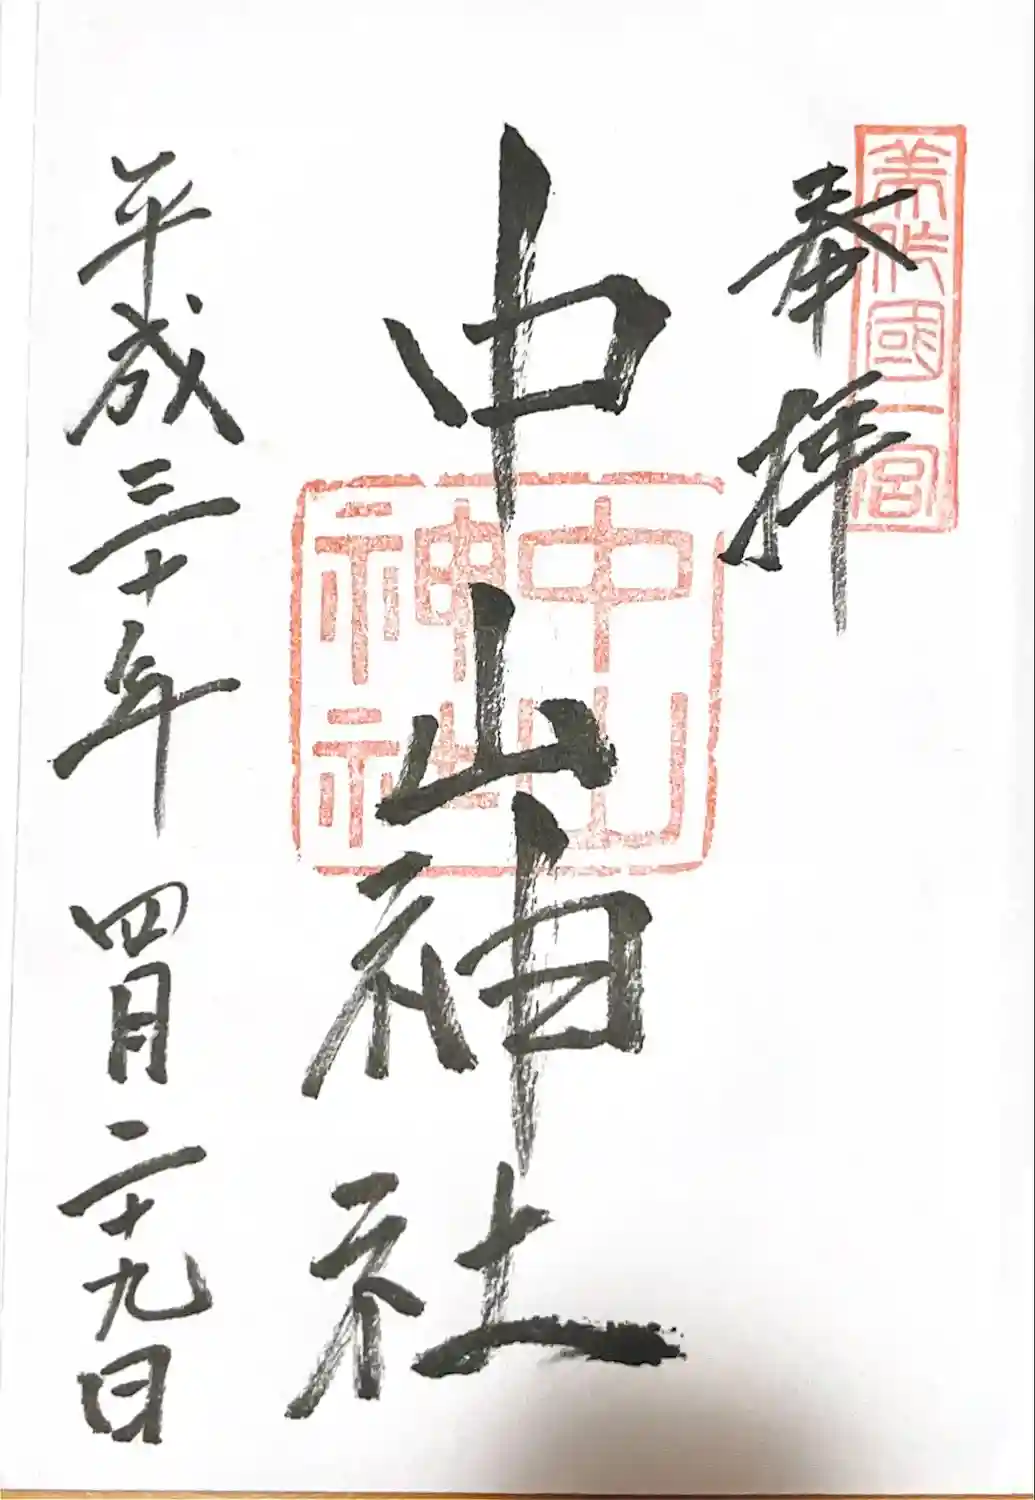 美作國一宮
奉拝
中山神社
中山
神社
平成三十年 四月二十九日